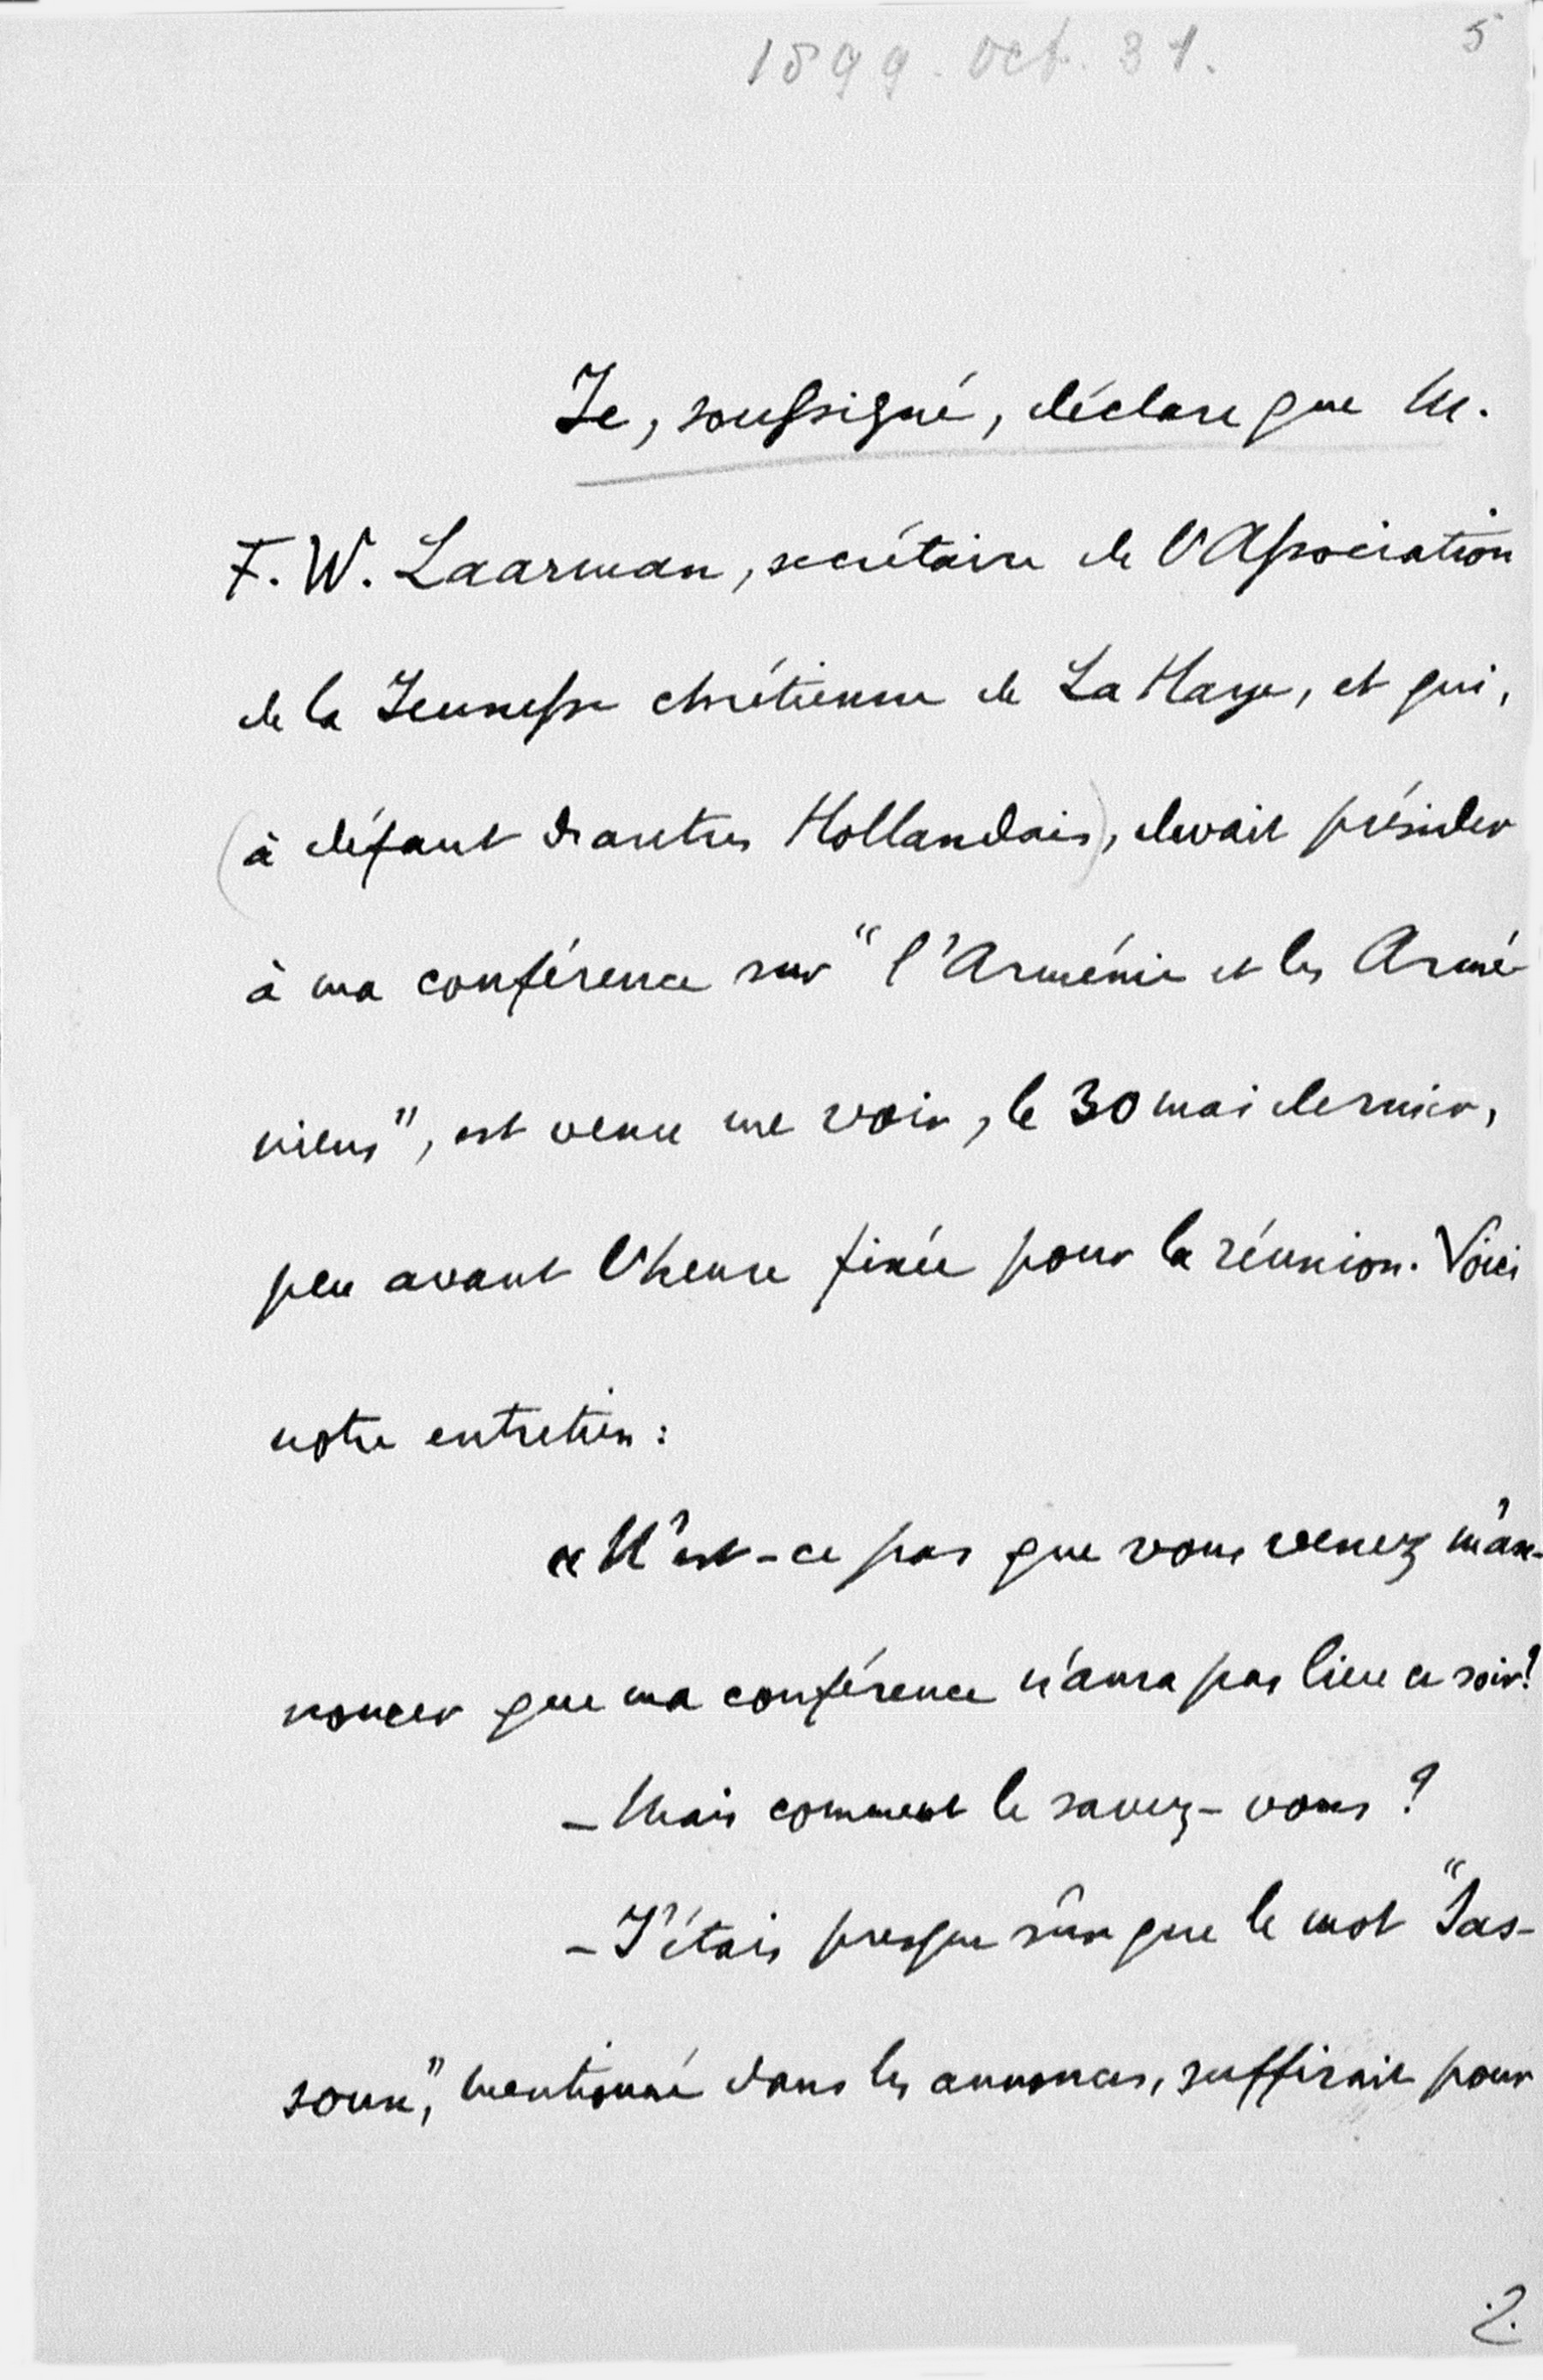 1899. oct. 31.
5
Je, soussigné, déclare que M.
F. W. Laarman, secrétaire de l'Association
de la Jeunesse chrétienne de La Haye, et qui,
(à défaut d'autres Hollandais), devait présider
à ma conférence sur “l'Arménie et les Armé-
niens”, est venu me voir, le 30 mai dernier,
peu avant l'heure fixée pour la réunion. Voici
notre entretien:
« N'est-ce pas que vous venez m'an-
noncer que ma conférence n'aura pas lieu ce soir?
– Mais comment le savez-vous?
– J'étais presque sûr que le mot “Sas-
soun”, mentionné dans les annonces, suffirait pour
2.